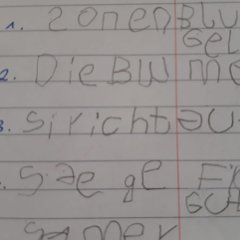 1. zonenBlu
Gel
2. DieBlume
3. Sirichtau
. Säe ge Fr
Gut
Samer